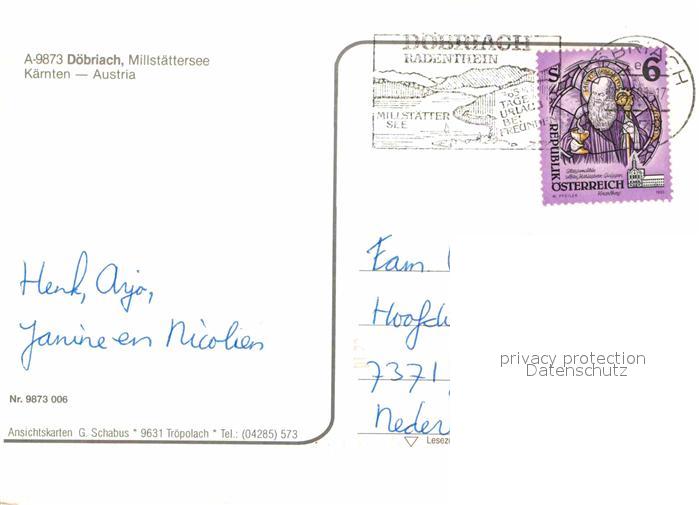 A-9873 Döbriach, Millstättersee
Kärnten — Austria
DÖBRIACH
RADENTHEIN
MILLSTÄTTER
SEE
TAGE
URLAUB
BEI
FREUNDEN
S 6
REPUBLIK
ÖSTERREICH
Henk, Arjo,
Janine en Nicolien
Fam
Hoofd
7371
Neder
privacy protection
Datenschutz
Nr. 9873 006
Ansichtskarten G. Schabus * 9631 Tröpolach * Tel.: (04285) 573